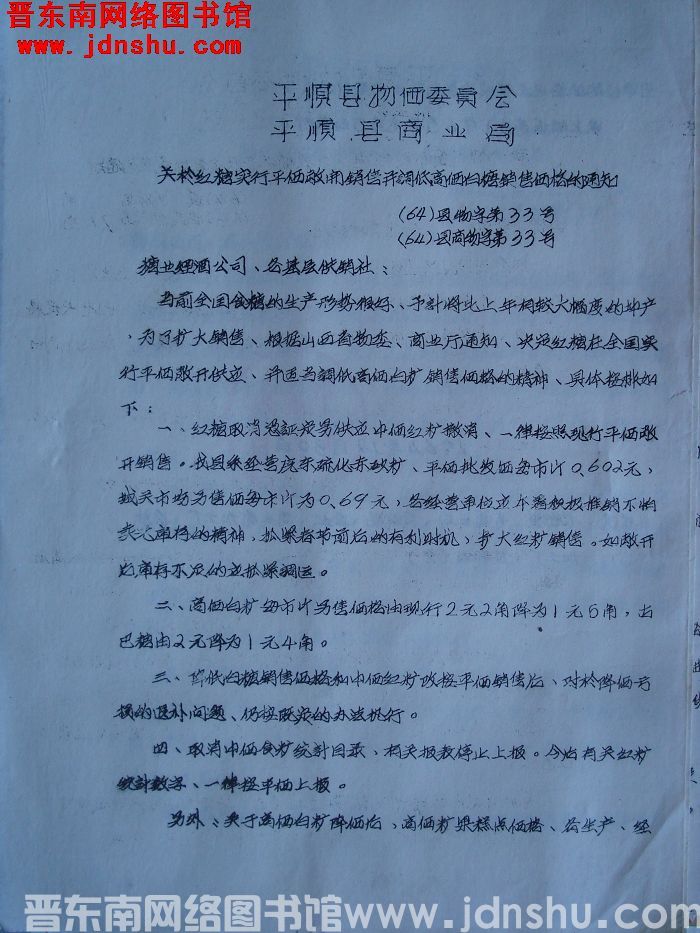 晋东南网络图书馆
www.jdnshu.com
平順县物価委員会
平順县商业局
关於红糖实行平価敞開銷售并調低高価白糖銷售価格的通知
(64)县物字第33号
(64)县商物字第33号
糖业烟酒公司、各基层供销社：
当前全国食糖的生产形势很好、予計将比上年有較大幅度的增产
，为了扩大銷售、根据山西省物委、商业厅通知、决定红糖在全国实
行平価敞开供应、并适当調低高価白糖銷售価格的精神、具体按排如
下：
一、红糖取消憑証定量供应中価红糖撤消、一律按照現行平価敞
开銷售。我县系经营广东硫化赤砂糖、平価批发価每市斤0.602元，
城关市場另售価每市斤为0.69元，各经营单位应本着积极推銷不怕
卖光庫存的精神，抓緊春节前后的有利时机，扩大红糖銷售。如敞开
后庫存不足的应抓緊調运。
二、高価白糖每市斤另售価格由現行2元2角降为1元5角，古
巴糖由2元降为1元4角。
三、降低白糖銷售価格和中価红糖改按平価銷售后、对於降価亏
損的退补问題、仍按既定的办法执行。
四、取消中価食糖統計目录、有关报表停止上报。今后有关红糖
統計数字、一律按平価上报。
另外：关于高価白糖降価后，高価糖菓糕点価格、各生产、经
晋东南网络图书馆 www.jdnshu.com